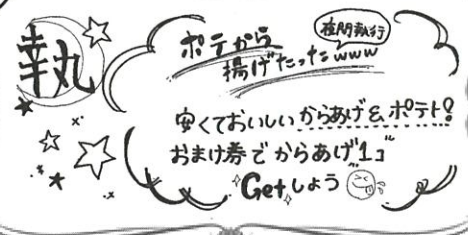 幸丸
夜間執行
ポテから
揚げたったwww
安くておいしいからあげ&ポテト!
おまけ券でからあげ"1コ"
Getしよう